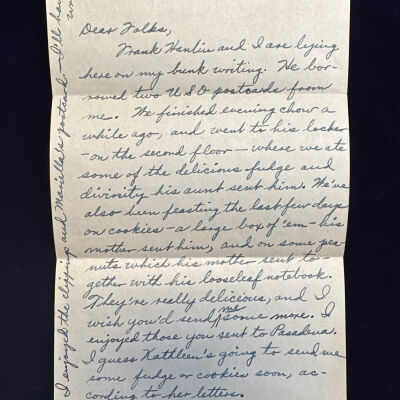 Dear Folks,
Frank Hanlin and I are lying
here on my bunk writing. He bor-
rowed two U S O postcards from
me. We finished evening chow a
while ago, and went to his locker
- on the second floor - where we ate
some of the delicious fudge and
divinity his aunt sent him. We've
also been feasting the last few days
on cookies - a large box of 'em - his
mother sent him, and on some pea-
nuts which his mother sent to-
gether with his looseleaf notebook.
They're really delicious, and I
wish you'd send me some more. I
enjoyed those you sent to Pasadena.
I guess Kathleen's going to send me
some fudge or cookies soon, ac-
cording to her letters.
I enjoyed the clippings and Mariella's postcard. I'll